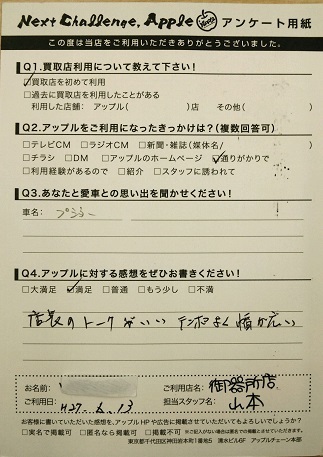 Next Challenge. Apple アンケート用紙
この度は当店をご利用いただきありがとうございました。
Q1.買取店利用について教えて下さい!
□買取店を初めて利用
□過去に買取店を利用したことがある
利用した店舗: アップル( )店 その他( )
Q2.アップルをご利用になったきっかけは?(複数回答可)
□テレビCM □ラジオCM □新聞・雑誌(媒体名/ )
□チラシ □DM □アップルのホームページ □通りがかりで
□利用経験があるので □紹介 □スタッフに誘われて
Q3.あなたと愛車との思い出を聞かせください!
車名: プジョー
Q4.アップルに対する感想をぜひお書きください!
□大満足 □満足 □普通 □もう少し □不満
店長のトークがいい テンポよく
お名前: ご利用店名: 御器所店
ご利用日: H27.6.13 担当スタッフ名: 山本
お客様に書いていただいた感想を、アップルHPや広告に掲載させていただいてもよろしいでしょうか?
□実名で掲載可 □匿名なら掲載可 □掲載不可 ※ご記入がない場合は匿名での掲載とさせていただきます。
東京都千代田区神田岩本町1番地5 清水ビル6F アップルチェーン本部